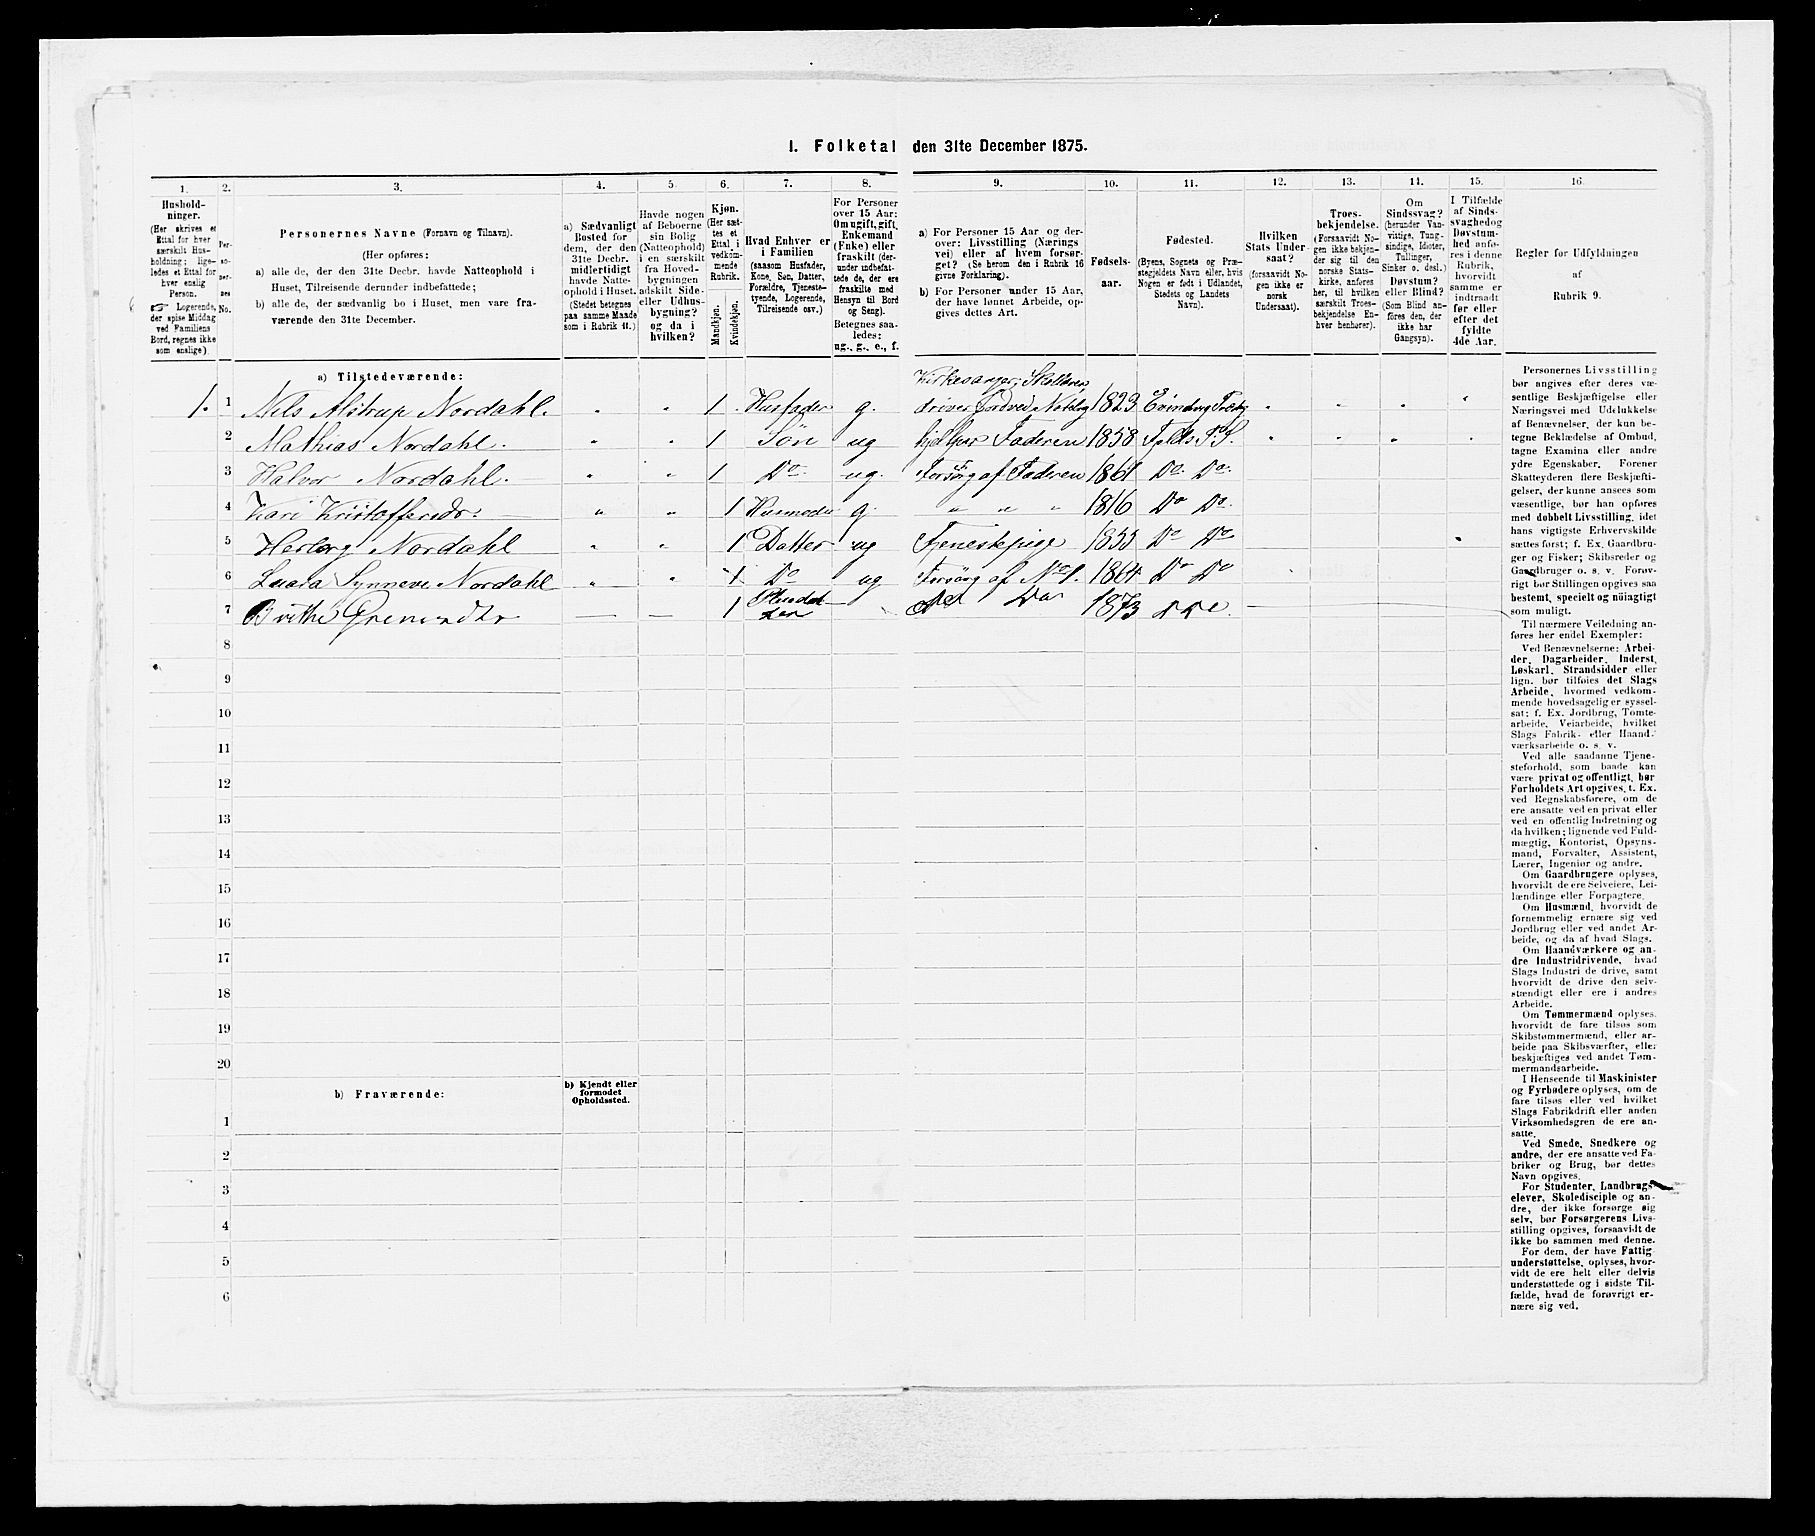 I. Folketal den 31te December 1875.
1. 2. 3. 4. 5. 6. 7. 8. 9. 10. 11. 12. 13. 14. 15. 16.
Hushold-
ninger.
(Her skrives et
Ettal for hver
særskilt Hus-
holdning; lige-
ledes et Ettal for
hver enslig
Person.
☞ Logerende,
der spise Middag
ved Familiens
Bord, regnes ikke
som enslige)
Per-
so-
ner-
nes
No.
Personernes Navne (Fornavn og Tilnavn).
(Her opføres:
a) alle de, der den 31te Decbr. havde Natteophold i
Huset, Tilreisende derunder indbefattede;
b) alle de, der sædvanlig bo i Huset, men vare fra-
værende den 31te December.
a) Sædvanligt
Bosted for
dem, der den
31te Decbr.
midlertidigt
havde Natte-
ophold i Huset.
(Stedet betegnes
paa samme Maade
som i Rubrik 11.)
Havde nogen
af Beboerne
sin Bolig
(Natteophold)
i en særskilt
fra Hoved-
bygningen
adskilt Side-
eller Udhus-
bygning?
og da i
hvilken?
Kjøn.
(Her sæt-
tes et
Ettal i
vedkom-
mende
Rubrik.
Mandkjøn.
Kvindekjøn.
Hvad Enhver er
i Familien
(saasom Husfader,
Kone, Søn, Datter,
Forældre, Tjeneste-
tyende, Logerende,
Tilreisende osv.)
For Personer
over 15 Aar:
Om ugift, gift,
Enkemand
(Enke) eller
fraskilt (der-
under indbefat-
tede de, der ere
fraskilte med
Hensyn til Bord
og Seng).
Betegnes saa-
ledes:
ug., g., e., f.
a) For Personer 15 Aar og der-
over: Livsstilling (Nærings
vei) eller af hvem forsør-
get? (Se herom den i Rubrik 16
givne Forklaring).
b) For Personer under 15 Aar,
der have lønnet Arbeide, op-
gives dettes Art.
Fødsels-
aar.
Fødested.
(Byens, Sognets og Præ-
stegjeldets Navn eller, hvis
Nogen er født i Udlandet,
Stedets og Landets
Navn).
Hvilken
Stats Under-
saat?
(forsaavidt No-
gen ikke er
norsk
Undersaat).
Troes-
bekjendelse.
(Forsaavidt No-
gen ikke bekjen-
der sig til den
norske Stats-
kirke, anføres
her, til hvilken
særskilt Troes-
bekjendelse En-
hver henhører).
Om
Sindssvag?
(herunder Van-
vittige, Tung-
sindige, Idioter,
Tullinger,
Sinker o. desl.)
Døvstum?
eller Blind?
(Som Blind an-
føres den, der
ikke har
Gangsyn).
I Tilfælde
af Sinds-
svaghed og
Døvstum-
hed anfø-
res i denne
Rubrik,
hvorvidt
samme er
indtraadt
før eller
efter det
fyldte
4de Aar.
Regler for Udfyldningen
af
Rubrik 9.
a) Tilstedeværende:
Kirkesanger,
1. 1 Nils Alstrup Nordahl. 1 Husfader g. driver Jordved 1823
2 Mathias Nordahl. 1 Søn ug hjelper Faderen 1858
3 Halvor Nordahl. 1 Do ug. Forsørg af Faderen 1861 Do Do
4 Kari Kristoffersdr. 1 Husmoder g. " " " 1816 Do Do
5 Herborg Nordahl 1 Datter ug Tjenestepige 1855 Do Do
6 Synneve Nordahl 1 Do ug Forsørg af 1861 Do Do
7 1 Pleiedat-
ter 1873
8
9
10
11
12
13
14
15
16
17
18
19
20
b) Fraværende:
b) Kjendt eller
formodet
Opholdssted.
1
2
3
4
5
6
Personernes Livsstilling
bør angives efter deres væ-
sentlige Beskjæftigelse eller
Næringsvei med Udelukkelse
af Benævnelser, der kun be-
tegne Beklædelse af Ombud,
tagne Examina eller andre
ydre Egenskaber. Forener
Skatteyderen flere Beskjæfti-
gelser, der kunne ansees som
væsentlige, bør han opføres
med dobbelt Livsstilling, idet
hans vigtigste Erhvervskilde
sættes først; f. Ex. Gaardbru-
ger og Fisker; Skibsreder og
Gaardbruger o. s. v. Forøv-
rigt bør Stillingen opgives saa
bestemt, specielt og nöiagtigt
som muligt.
Til nærmere Veiledning an-
føres her endel Exempler:
Ved Benævnelserne: Arbei-
der, Dagarbeider, Inderst,
Løskarl, Strandsidder eller
lign. bør tilføies det Slags
Arbeide, hvormed vedkom-
mende hovedsagelig er syssel-
sat; f. Ex. Jordbrug, Tomte-
arbeide, Veiarbeide, hvilket
Slags Fabrik- eller Haand-
værksarbeide o. s. v.
Ved alle saadanne Tjene-
steforhold, som baade kan
være privat og offentligt, bør
Forholdets Art opgives, t. Ex.
ved Regnskabsførere, om de
ere ansatte ved en privat eller
ved en offentlig Indretning og
da hvilken; lignende ved Fuld-
mægtig, Kontorist, Opsyns-
mand, Forvalter, Assistent,
Lærer, Ingeniør og andre.
Om Gaardbrugere oplyses,
hvorvidt de ere Selveiere, Lei-
lændinge eller Forpagtere.
Om Husmænd, hvorvidt de
fornemmelig ernære sig ved
Jordbrug eller ved andet Ar-
beide, og da af hvad Slags.
Om Haandværkere og an-
dre Industridrivende, hvad
Slags Industri de drive, samt
hvorvidt de drive den selv-
stændigt eller ere i andres
Arbeide.
Om Tømmermænd oplyses,
hvorvidt de fare tilsøs som
Skibstømmermænd, eller ar-
beide paa Skibsværfter, eller
beskjæftiges ved andet Tøm-
mermandsarbeide.
I Henseende til Maskinister
og Fyrbødere oplyses, om de
fare tilsøs eller ved hvilket
Slags Fabrikdrift eller anden
Virksomhedsgren de ere an-
satte.
Ved Smede, Snedkere og
andre, der ere ansatte ved Fa-
briker og Brug, bør dettes
Navn opgives.
For Studenter, Landbrugs-
elever, Skoledisciple og an-
dre, der ikke forsørge sig
selv, bør Forsørgerens Livs-
stilling opgives, forsaavidt de
ikke bo sammen med denne.
For dem, der have Fattig-
understøttelse, oplyses, hvor-
vidt de ere helt eller delvis
understøttede og i sidste Til-
fælde, hvad de forøvrigt er-
nære sig ved.